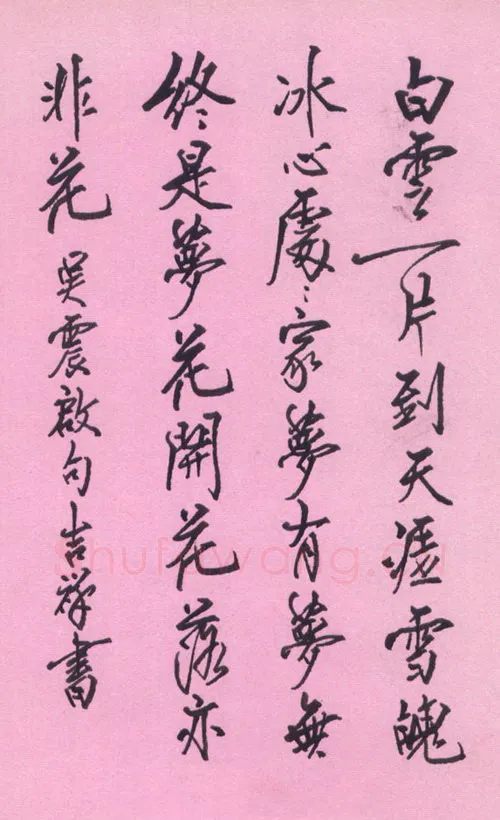 白雲一片到天涯雪魄
冰心處〻家夢有夢無
終是夢花開花落亦
非花 吳震啟句吉祥書